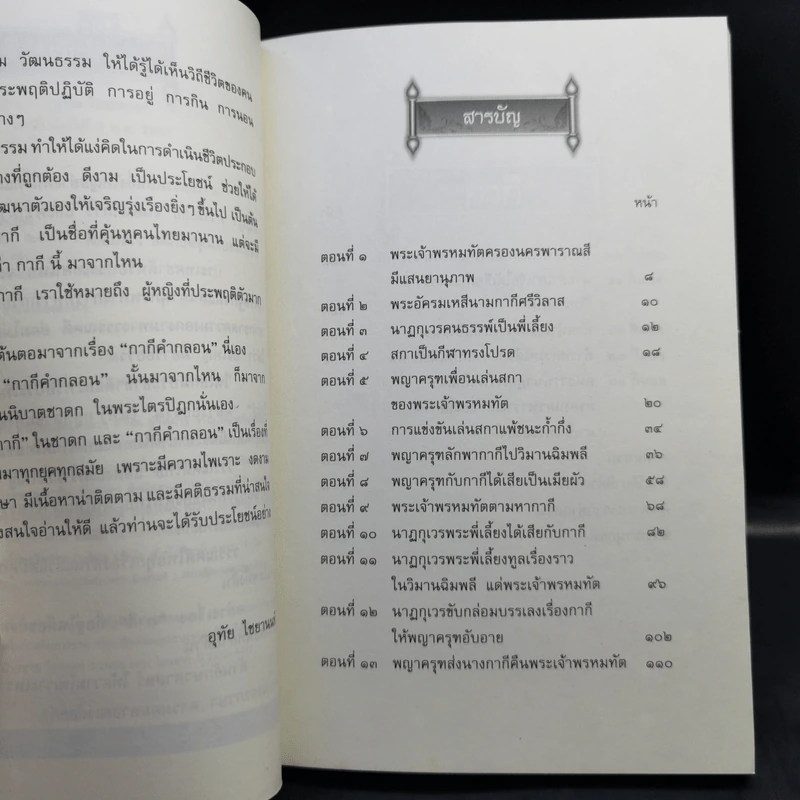 วัฒนธรรม ให้ได้รู้ได้เห็นวิถีชีวิตของคน
ระพฤติปฏิบัติ การอยู่ การกิน การนอน
างๆ
รรม ทำให้ได้แง่คิดในการดำเนินชีวิตประกอบ
างที่ถูกต้อง ดีงาม เป็นประโยชน์ ช่วยให้ได้
ฒนาตัวเองให้เจริญรุ่งเรืองยิ่งๆ ขึ้นไป เป็นต้น
ากี เป็นชื่อที่คุ้นหูคนไทยมานาน แต่จะมี
่า กากี นี้ มาจากไหน
กี เราใช้หมายถึง ผู้หญิงที่ประพฤติตัวมาก
ต้นตอมาจากเรื่อง “กากีคำกลอน” นี่เอง
“กากีคำกลอน” นั้นมาจากไหน ก็มาจาก
นนิบาตชาดก ในพระไตรปิฎกนั่นเอง
กี” ในชาดก และ “กากีคำกลอน” เป็นเรื่องที่
มาทุกยุคทุกสมัย เพราะมีความไพเราะ งดงาม
ษา มีเนื้อหาน่าติดตาม และมีคติธรรมที่น่าสนใจ
งสนใจอ่านให้ดี แล้วท่านจะได้รับประโยชน์อย่าง
อุทัย ไชยานนท์
สารบัญ
หน้า
ตอนที่ ๑ พระเจ้าพรหมทัตครองนครพาราณสี
มีแสนยานุภาพ ๘
ตอนที่ ๒ พระอัครมเหสีนามกากีศรีวิลาส ๑๐
ตอนที่ ๓ นาฏกุเวรคนธรรพ์เป็นพี่เลี้ยง ๑๒
ตอนที่ ๔ สกาเป็นกีฬาทรงโปรด ๑๘
ตอนที่ ๕ พญาครุฑเพื่อนเล่นสกา
ของพระเจ้าพรหมทัต ๒๐
ตอนที่ ๖ การแข่งขันเล่นสกาแพ้ชนะก้ำกึ่ง ๓๔
ตอนที่ ๗ พญาครุฑลักพากากีไปวิมานฉิมพลี ๓๖
ตอนที่ ๘ พญาครุฑกับกากีได้เสียเป็นเมียผัว ๕๘
ตอนที่ ๙ พระเจ้าพรหมทัตตามหากากี ๖๘
ตอนที่ ๑๐ นาฏกุเวรพระพี่เลี้ยงได้เสียกับกากี ๘๒
ตอนที่ ๑๑ นาฏกุเวรพระพี่เลี้ยงทูลเรื่องราว
ในวิมานฉิมพลี แด่พระเจ้าพรหมทัต ๙๖
ตอนที่ ๑๒ นาฏกุเวรขับกล่อมบรรเลงเรื่องกากี
ให้พญาครุฑอับอาย ๑๐๒
ตอนที่ ๑๓ พญาครุฑส่งนางกากีคืนพระเจ้าพรหมทัต ๑๑๐